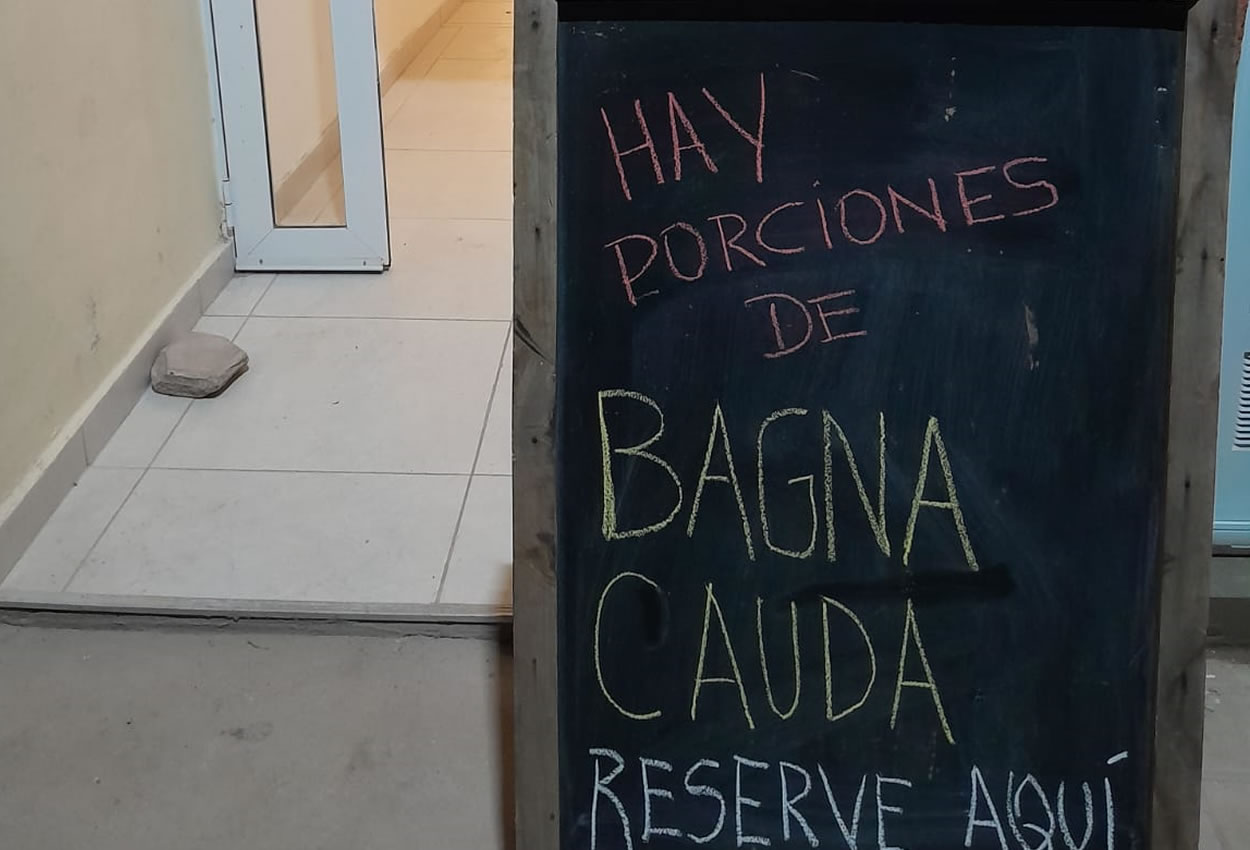 HAY
PORCIONES
DE
BAGNA
CAUDA
RESERVE AQUÍ